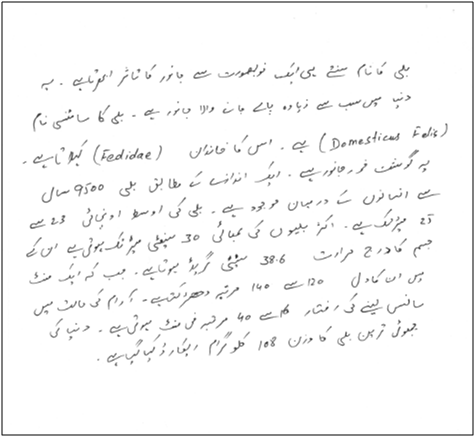 بلی کا نام سنتے ہی ایک خوبصورت سے جانور کا تاثر ابھرتا ہے ۔ یہ
دنیا میں سب سے زیادہ پالے جانے والا جانور ہے ۔ بلی کا سائنسی نام
(Domesticus Felis) ہے ۔ اس کا خاندان (Fedidae) کہلاتا ہے ۔
یہ گوشت خور جانور ہے ۔ ایک اندازے کے مطابق بلی 9500 سال
سے انسانوں کے درمیان موجود ہے ۔ بلی کی اوسط اونچائی 23 سے
25 میٹر تک ہے ۔ اکثر بلیوں کی لمبائی 30 سینٹی میٹر تک ہوتی ہے ان کے
جسم کا درجہ حرارت 38.6 سینٹی گریڈ ہوتا ہے ۔ جب کہ ایک منٹ
میں ان کا دل 120 سے 140 مرتبہ دھڑکتا ہے ۔ آرام کی حالت میں
سانس لینے کی رفتار 16 سے 40 مرتبہ فی منٹ ہوتی ہے ۔ دنیا کی
چھوٹی ترین بلی کا وزن 108 کلو گرام ریکارڈ کیا گیا ہے ۔